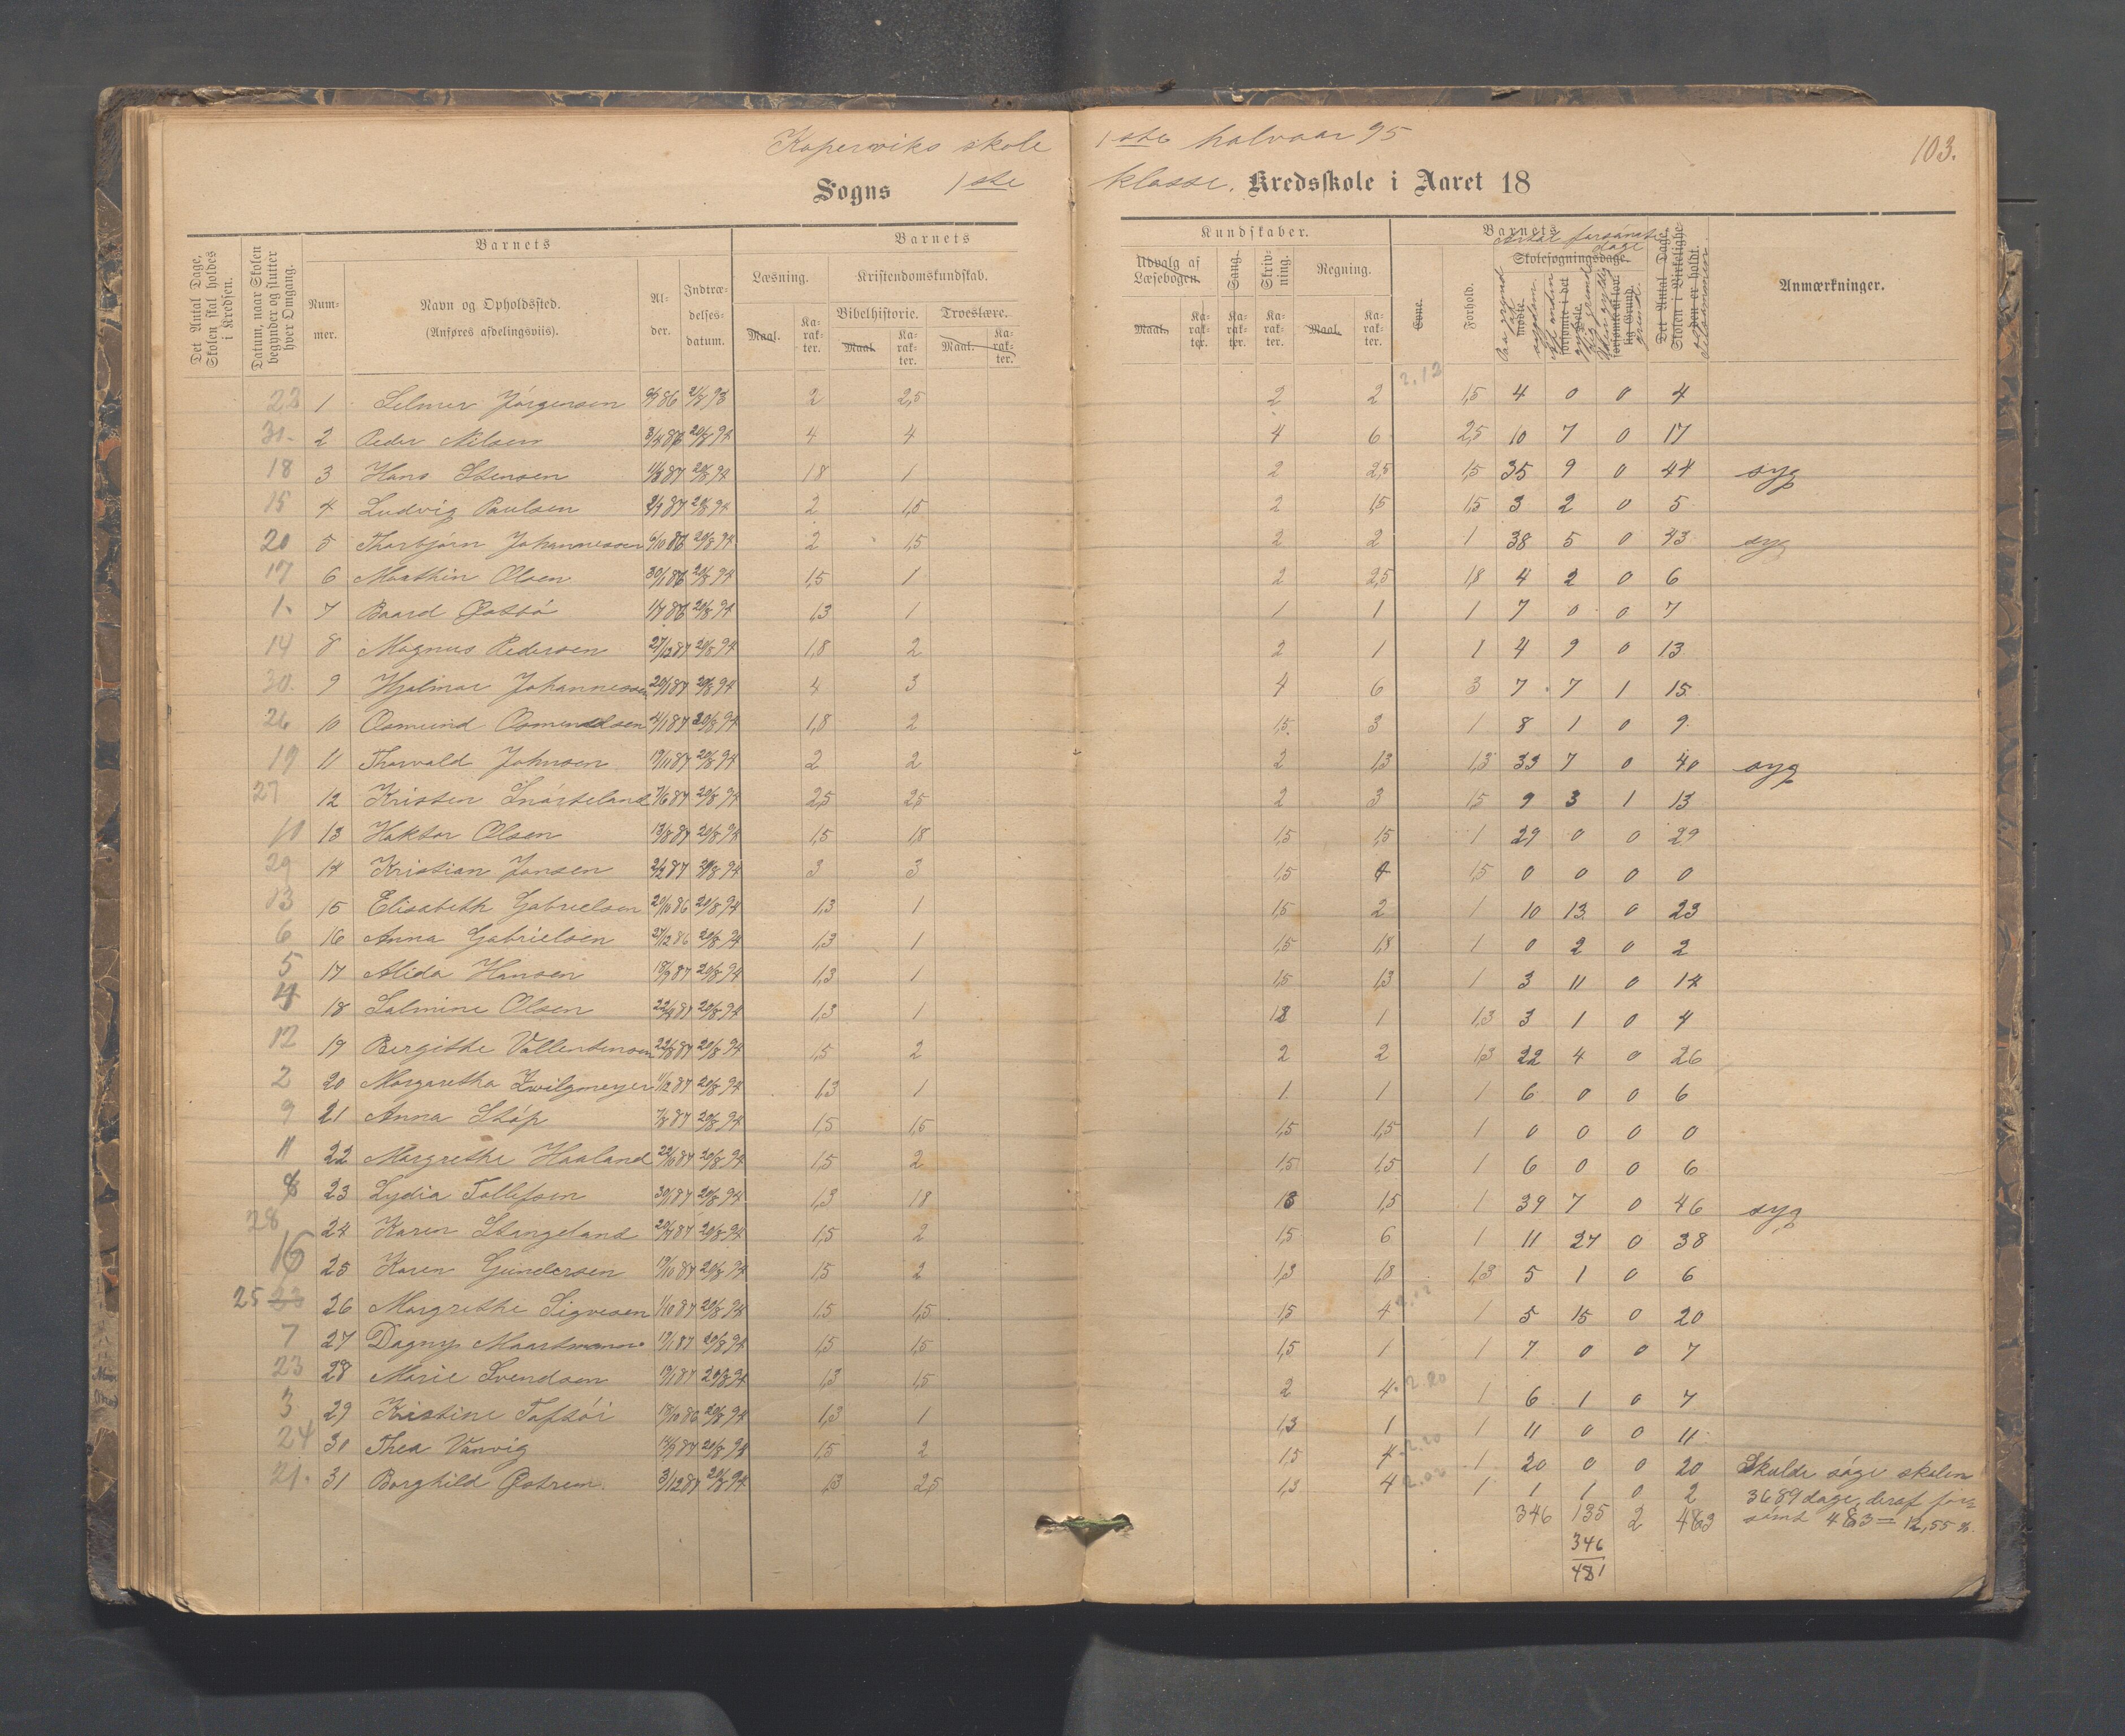 Kopervviks skole 1ste halvaar 95
103.
Sogns 1ste klasse. Kredsskole i Aaret 18
Det Antal Dage, Skolen skal holdes i Kredsen.
Datum, naar Skolen begynder og slutter hver Omgang.
Barnets
Nummer.
Navn og Opholdssted.
(Anføres afdelingsviis).
Alder.
Indtrædelsesdatum.
Barnets
Læsning.
Maal.
Karakter.
Kristendomskundskab.
Bibelhistorie.
Maal.
Karakter.
Troeslære.
Maal.
Karakter.
Kundskaber.
Udvalg af Læsebogen.
Maal.
Karakter.
Sang.
Karakter.
Skrivning.
Karakter.
Regning.
Maal.
Karakter.
Evne.
Forhold.
Barnets
Antal forsømte dage
Skolesøgningsdage.
Det Antal Dage, Skolen i Virkeligheden er holdt.
Anmærkninger.
1 Selmer Jørgensen 2 2,5 2 2 2.12 1,5 4 0 0 4
31. 2 Peder Nilsen 3/4 86 20/8 94 4 4 4 6 2,5 10 7 0 17
18 3 Hans Stensen 20/8 94 1,8 1 2 2,5 1,5 35 9 0 44 syg
15 4 Ludvig Paulsen 20/8 94 2 1,5 2 1,5 1,5 3 2 0 5
20 5 Thorbjørn Johannessen 6/10 86 20/8 94 2 1,5 2 2 1 38 5 0 43 syg
17 6 Marthin Olsen 30/1 86 20/8 94 1,5 1 2 2,5 1,8 4 2 0 6
1. 7 Baard Østbø 20/8 94 1,3 1 1 1 1 7 0 0 7
14 8 Magnus Pedersen 27/12 87 20/8 94 1,8 2 2 1 1 4 9 0 13
30. 9 Hjalmar Johannessen 20/1 87 20/8 94 4 3 4 6 3 7 7 1 15
26 10 Osmund Osmundsen 4/1 87 20/8 94 1,8 2 1,5 3 1 8 1 0 9
19 11 Thorvald Johnsen 19/11 87 20/8 94 2 2 2 1,3 1,3 33 7 0 40 syg
27 12 Kristen Snørteland 7/6 87 20/8 94 2,5 2,5 2 3 1,5 9 3 1 13
10 13 Haktor Olsen 13/8 87 20/8 94 1,5 1,8 1,5 1,5 1 29 0 0 29
29 14 Kristian Jansen 2/2 87 20/8 94 3 3 1,5 4 1,5 0 0 0 0
13 15 Elisabeth Gabrielsen 20/10 86 20/8 94 1,3 1 1,5 2 1 10 13 0 23
6 16 Anna Gabrielsen 27/12 86 20/8 94 1,3 1 1,5 1,8 1 0 2 0 2
5 17 Alida Hansen 20/8 94 1,3 1 1,5 1,3 1 3 11 0 14
4 18 Salmine Olsen 20/8 94 1,3 1 1 1,3 3 1 0 4
12 19 Bergithe Vallentinsen 20/8 94 1,5 2 2 2 1,3 22 4 0 26
2 20 Margaretha Zwilgmeyer 11/12 87 20/8 94 1,3 1 1 1 1 6 0 0 6
9 21 Anna Støp 7/8 87 20/8 94 1,5 1,5 1,5 1,5 1 0 0 0 0
11 22 Margrethe Haaland 20/8 94 1,5 2 1,5 1,5 1 6 0 0 6
8 23 Lydia Tollefsen 30/1 87 20/8 94 1,3 1,8 1,8 1,5 1 39 7 0 46 syg
28 24 Karen Stangeland 20/8 94 1,5 2 1,5 6 1 11 27 0 38
16 25 Karen Gundersen 19/10 87 20/8 94 1,5 2 1,3 1,8 1,3 5 1 0 6
25 26 Margrethe Sigvesen 1/10 87 20/8 94 1,5 1,5 1,5 4 2.12 1 5 15 0 20
7 27 Dagny Maartmann 19/1 87 20/8 94 1,5 1,5 1,5 1 1 7 0 0 7
23 28 Marie Svendsen 19/1 87 20/8 94 1,3 1,5 2 4 2.20 1 6 1 0 7
3 29 Kristine Toftøi 18/10 86 20/8 94 1,3 1 1,3 1 1 11 0 0 11
24 30 Thea Vanvig 20/8 94 1,5 2 1,5 4 2.20 1 20 0 0 20 Skulde søge skolen
21. 31 Borghild Østrem. 3/12 87 20/8 94 1,3 2,5 1,3 4 2.00 1 1 1 0 2 3689 dage, deraf for-
346 135 2 483 sømt 483 = 12,55 %.
346
481